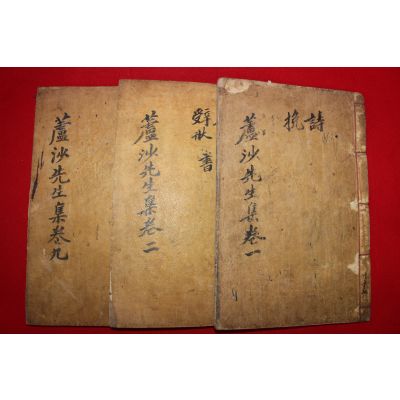 詩
挽
蘆沙先生集卷一
書
蘆沙先生集卷二
蘆沙先生集卷九